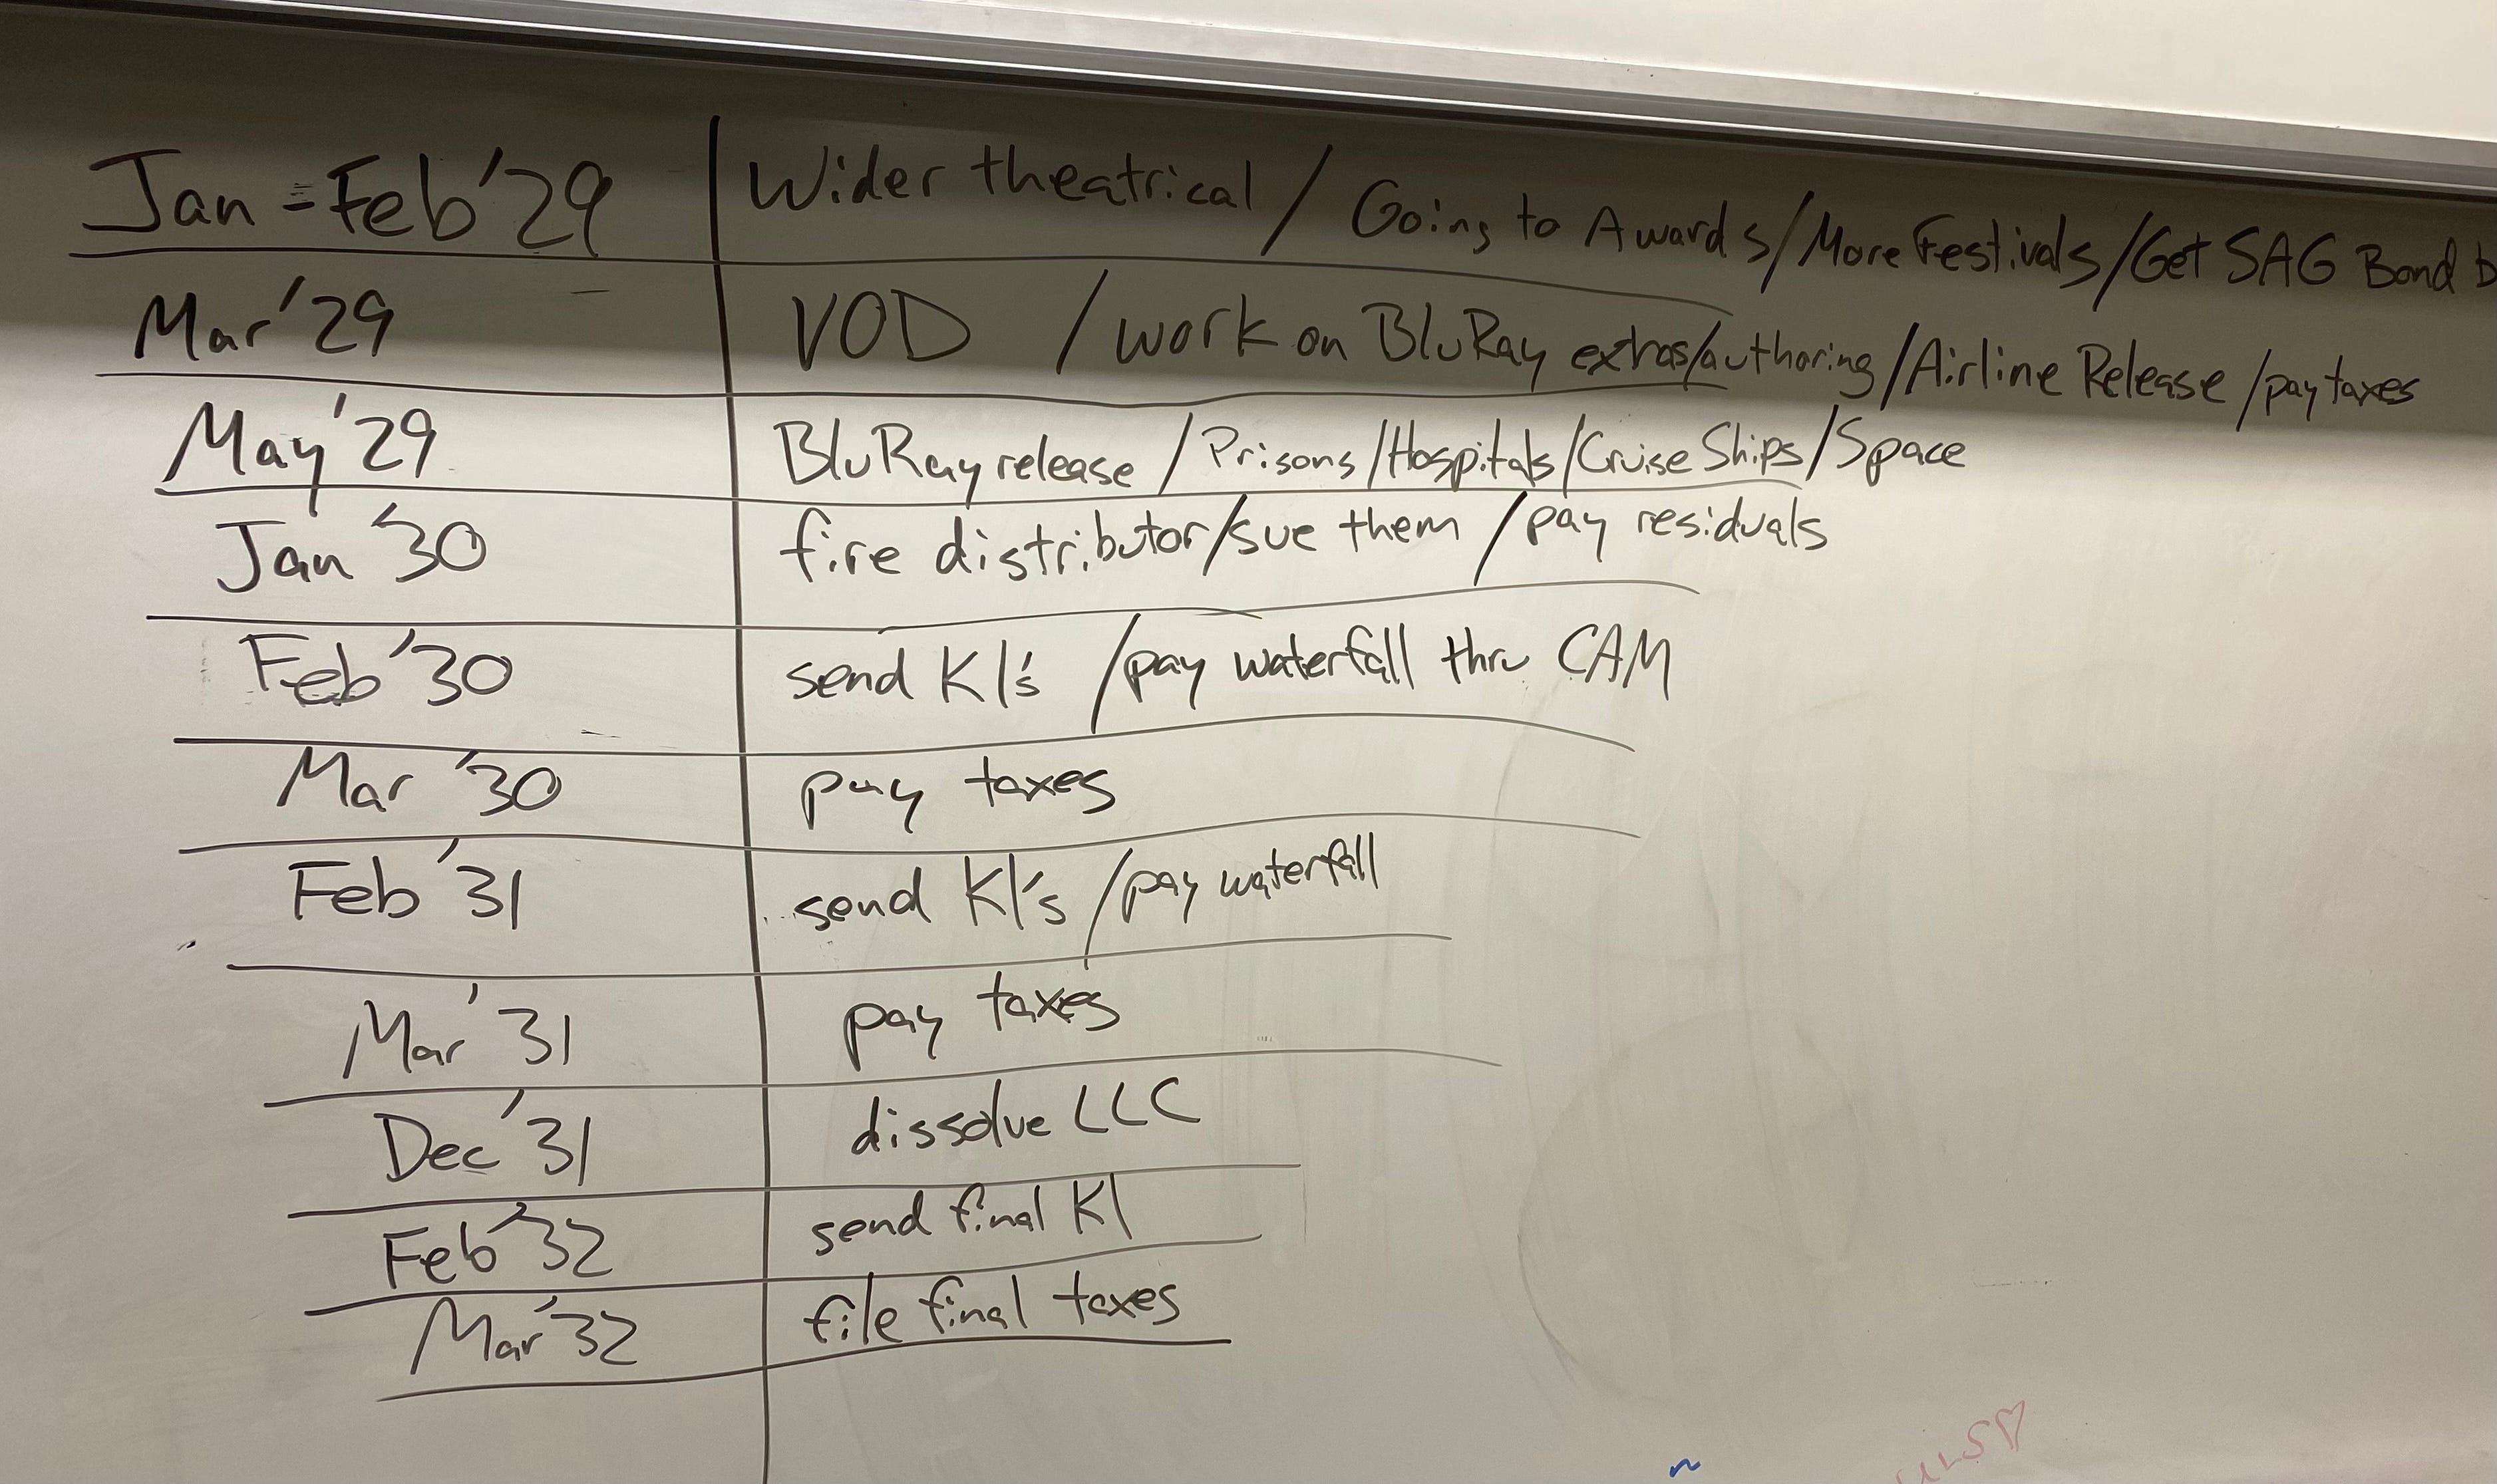 Jan-Feb '29 Wider theatrical / Going to Awards/More Festivals/Get SAG Bond
Mar '29 VOD / work on BluRay extras/authoring/Airline Release/pay taxes
May '29 BluRay release / Prisons/Hospitals/Cruise Ships/Space
Jan '30 fire distributor/sue them / pay residuals
Feb '30 send K1's / pay waterfall thru CAM
Mar '30 pay taxes
Feb '31 send K1's / pay waterfall
Mar '31 pay taxes
Dec '31 dissolve LLC
Feb '32 send final K1
Mar '32 file final taxes